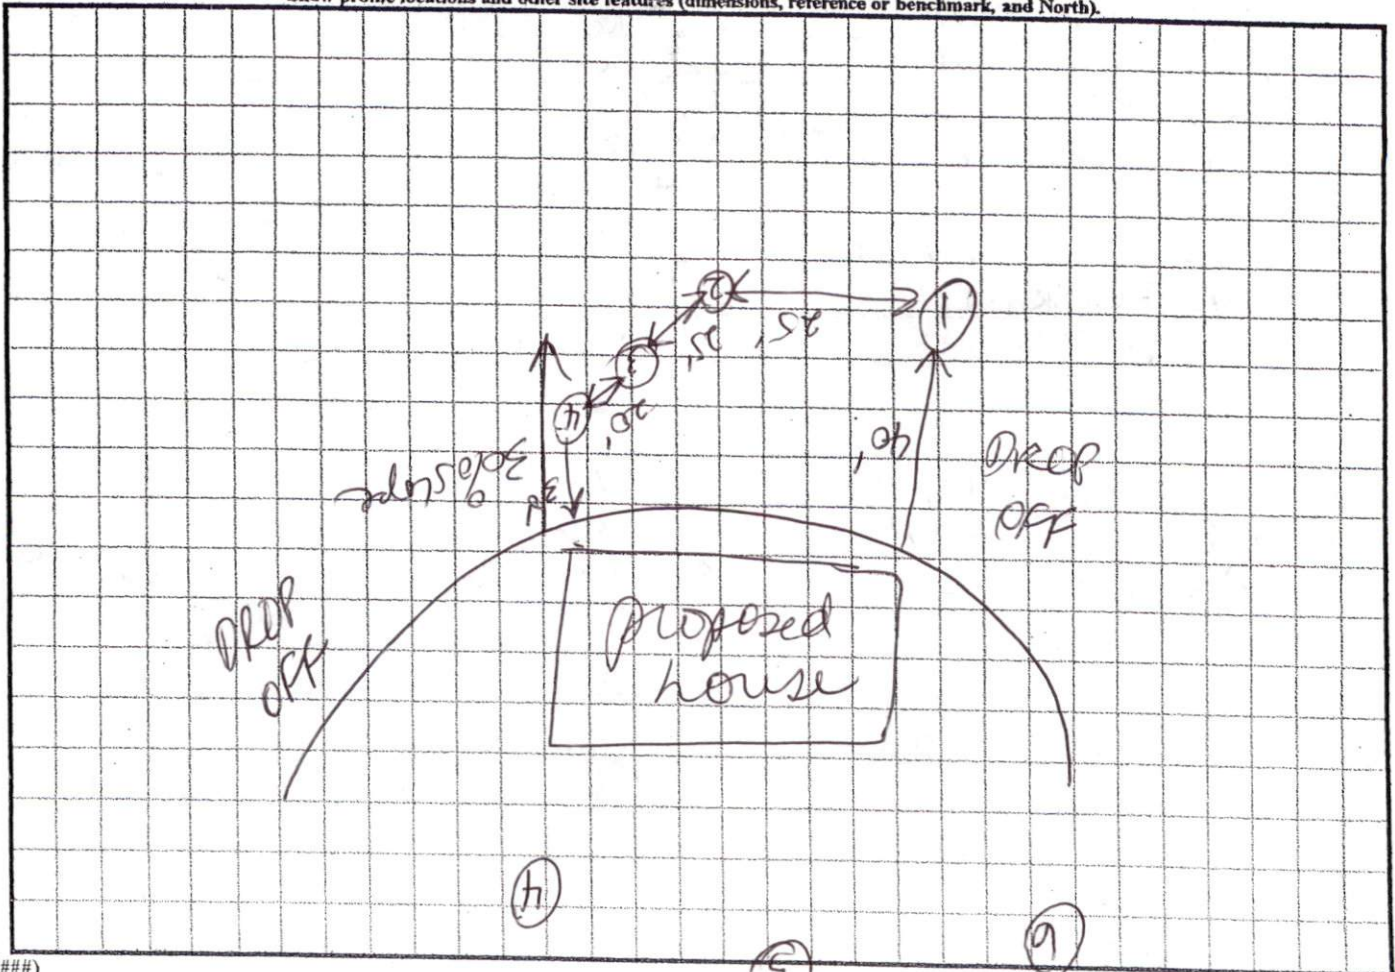 Show profile locations and other site features (dimensions, reference or benchmark, and North).
2
1
25'
25'
3
4
20'
40'
DROP
OFF
30% slope
DROP
OFF
proposed
house
4
6
###)